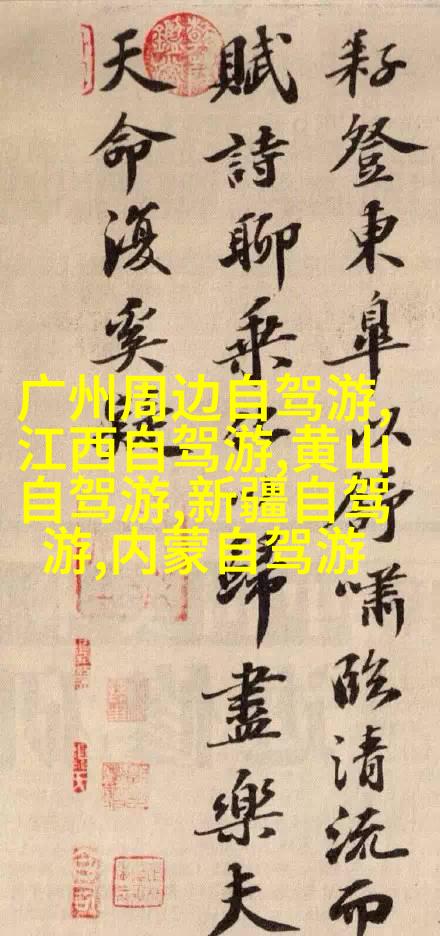 耔登東皋以舒嘯臨清流而
賦詩聊乘歸盡樂夫
天命復奚疑
广州周边自驾游,
江西自驾游,黄山
自驾游,新疆自驾
游,内蒙自驾游